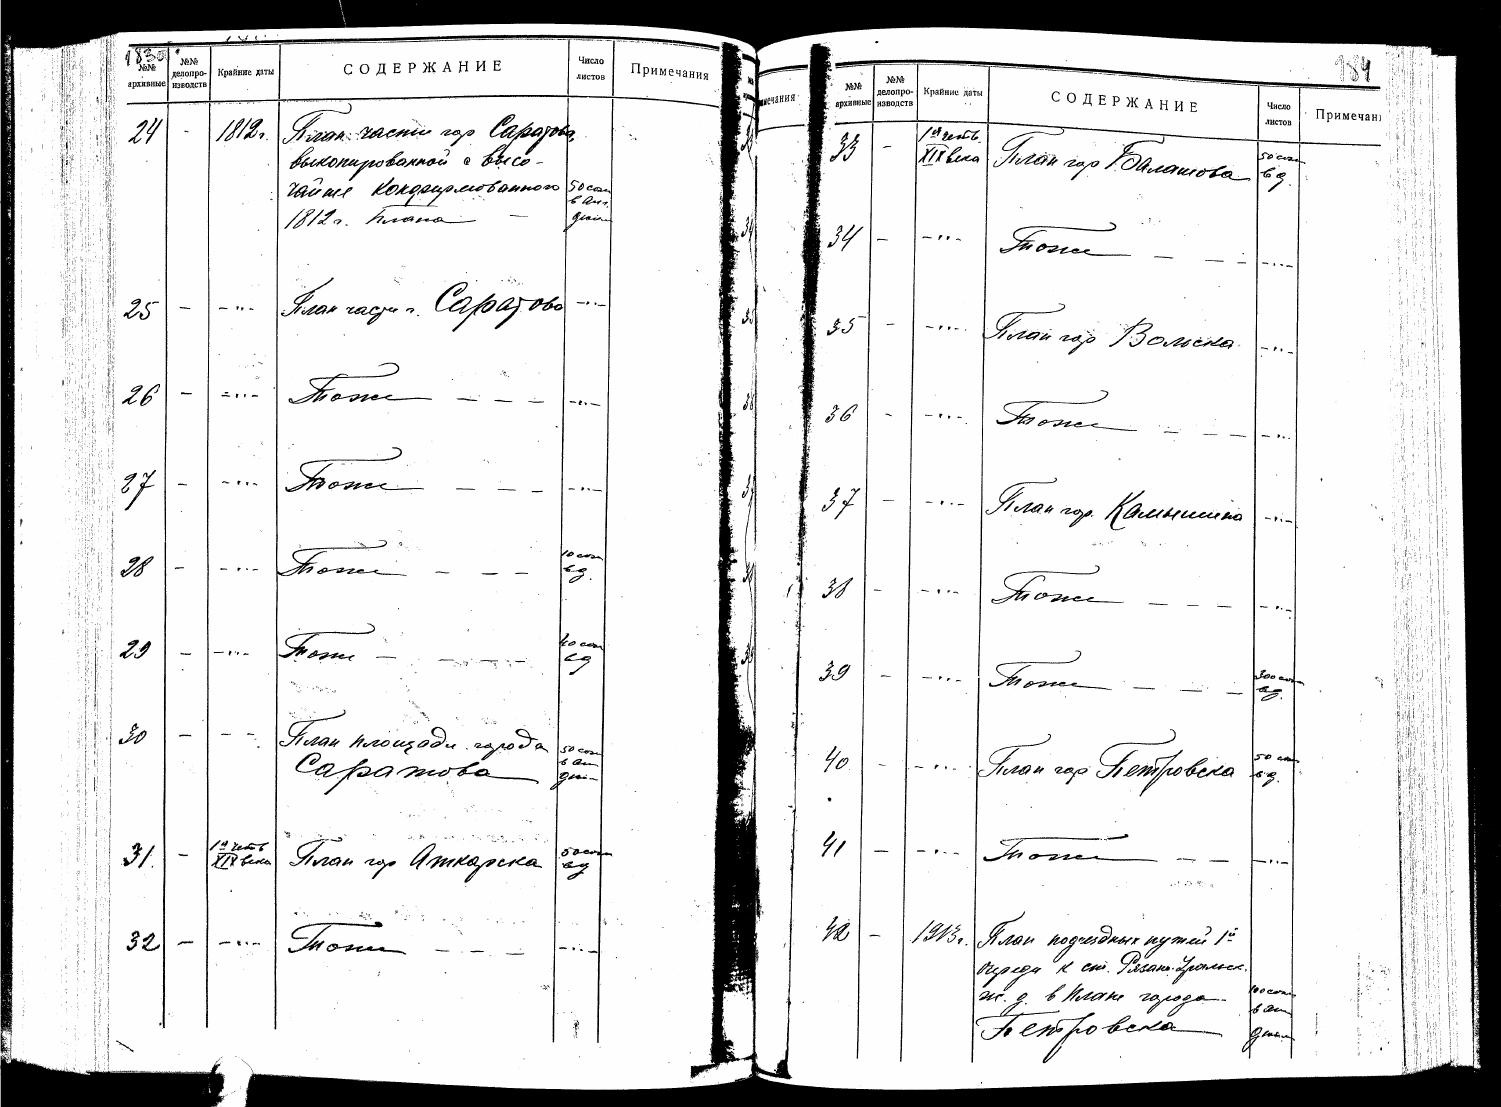 183об
№№ архивные
№№ делопро-изводств
Крайние даты
СОДЕРЖАНИЕ
Число листов
Примечания
24 - 1812г. План части гор Саратова,
выкопированной с высо-
чайше конфирмованного 50 саж
1812г. плана - в англ.
дюйм
25 - -"- План части г. Саратова -"-
26 - -"- Тоже - - - -"-
27 - -"- Тоже - - - -"-
28 - -"- Тоже - - - 10 саж
в д.
29 - -"- Тоже - - - - 40 саж
в д
30 - - - План площади города 50 саж
Саратова в ан
дюй-
31. - 1я четв План гор Аткарска 50 саж
XIX века в д
32 - -"- Тоже - - - -"-
184
мечания
№№ архивные
№№ делопро-изводств
Крайние даты
СОДЕРЖАНИЕ
Число листов
Примечані
33 - 1я четв. План гор Балашова 50 саж
XIX века в д.
34 - -"- Тоже - - - -"-
35 - -"- План гор Вольска -"-
36 - -"- Тоже - - - -"-
37 - -"- План гор. Камышина -"-
38 - -"- Тоже - - - -"-
39 - -"- Тоже - - - 300 саж
в д.
40 - -"- План гор Петровска 50 саж
в д.
41 - -"- Тоже - - -"-
42 - 1913г. План подъездных путей 1й
очереди к ст. Рязано-Уральск.
ж. д. в плане города 100 саж
Петровска в ан
дюйм